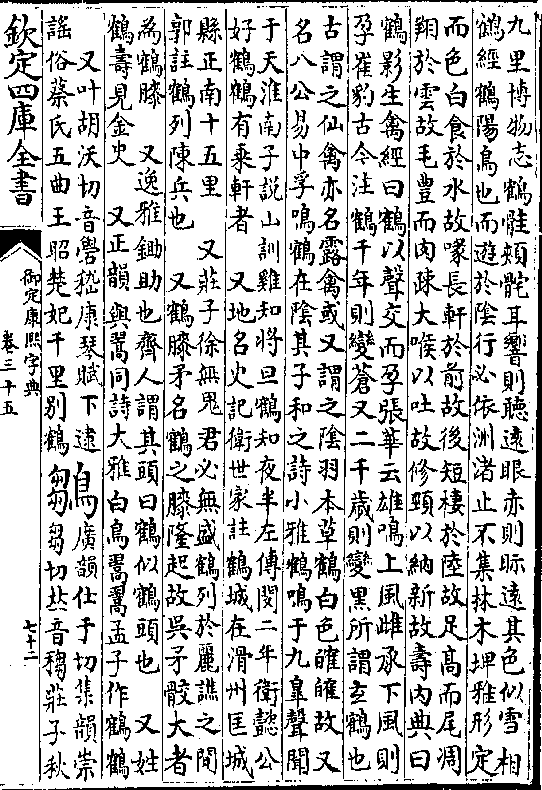 九里博物志鶴䯊頰䯆耳響則聽遠眼赤則眎遠其色似雪相
鶴經鶴陽鳥也而遊於陰行必依洲渚止不集林木埤雅形定
而色白食於水故喙長軒於前故後短棲於陸故足高而尾凋
翔於雲故毛豐而肉疎大喉以吐故修頸以納新故壽內典曰
鶴影生禽經曰鶴以聲交而孕張華云雄鳴上風雌承下風則
孕崔豹古今注鶴千年則變蒼又二千歲則變黑所謂玄鶴也
古謂之仙禽亦名露禽或又謂之陰羽本草鶴白色皠皠故又
名八公易中孚鳴鶴在陰其子和之詩小雅鶴鳴于九皋聲聞
于天淮南子說山訓雞知將旦鶴知夜半左傳閔二年衛懿公
好鶴鶴有乘軒者　又地名史記衛世家註鶴城在滑州匡城
縣正南十五里　又莊子徐無鬼君必無盛鶴列於麗譙之間
郭註鶴列陳兵也　又鶴膝矛名鶴之膝隆起故吳矛骹大者
爲鶴膝　又逸雅鋤助也齊人謂其頭曰鶴似鶴頭也　又姓
鶴壽見金史　又正韻與翯同詩大雅白鳥翯翯孟子作鶴鶴
又叶胡沃切音嚳嵇康琴賦下逮
謠俗蔡氏五曲王昭楚妃千里別鶴
廣韻仕于切集韻崇
芻切𠀤音㹱莊子秋
欽定四庫全書
御定康熙字典
卷三十五
七十二